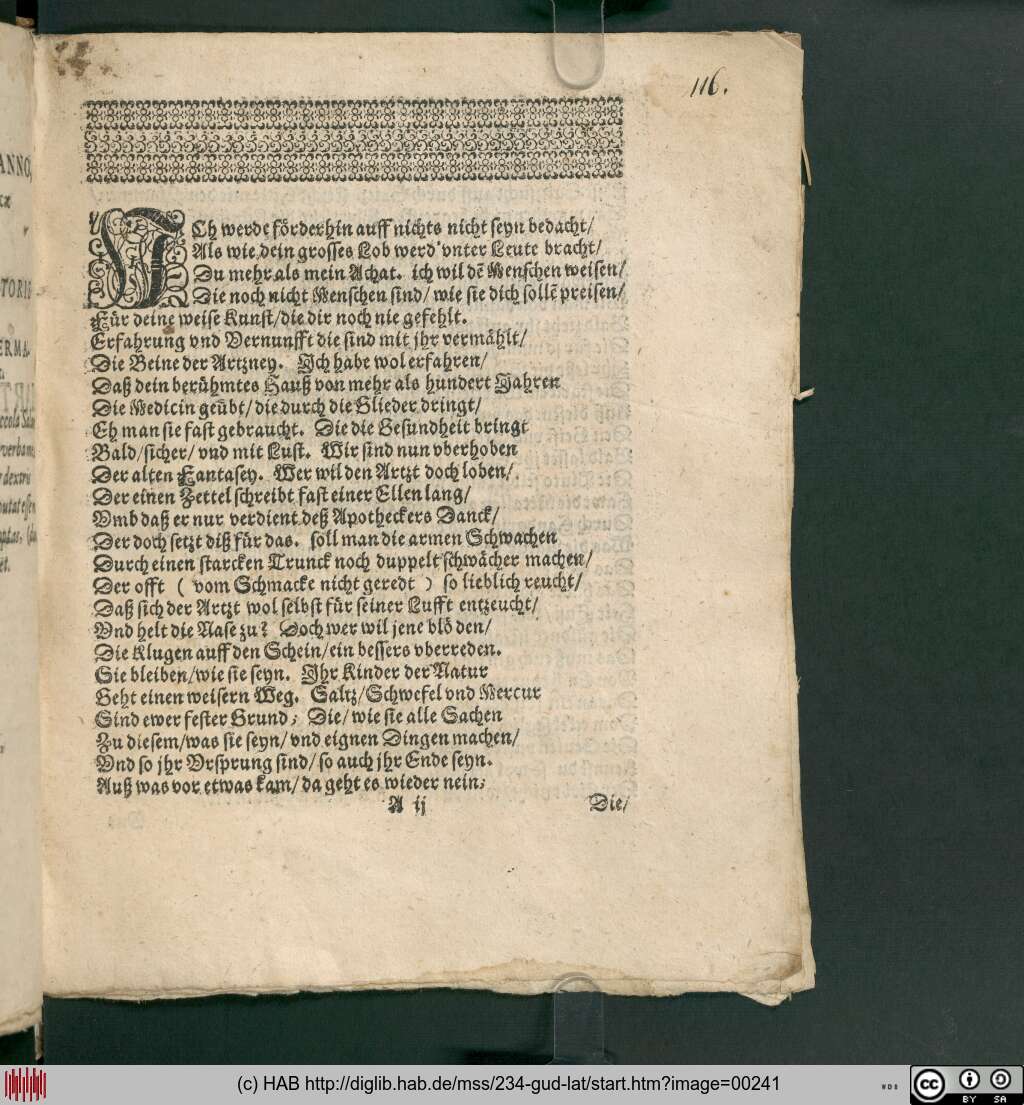 116.
ANNO,
TORIS
ERMA-
ICh werde förderhin auff nichts nicht seyn bedacht/
Als wie dein grosses Lob werd' vnter Leute bracht/
Du mehr als mein Achat. ich wil dē Menschen weisen/
Die noch nicht Menschen sind/ wie sie dich sollē preisen/
Für deine weise Kunst/die dir noch nie gefehlt.
Erfahrung vnd Vernunfft die sind mit jhr vermählt/
Die Beine der Artzney. Ich habe wol erfahren/
Daß dein berühmtes Hauß von mehr als hundert Jahren
Die Medicin geübt/die durch die Glieder dringt/
Eh man sie fast gebraucht. Die die Gesundheit bringt
Bald/sicher/ vnd mit Lust. Wir sind nun vberhoben
Der alten Fantasey. Wer wil den Artzt doch loben/
Der einen Zettel schreibt fast einer Ellen lang/
Vmb daß er nur verdient deß Apotheckers Danck/
Der doch setzt diß für das. soll man die armen Schwachen
Durch einen starcken Trunck noch duppelt schwächer machen/
Der offt ( vom Schmacke nicht geredt ) so lieblich reucht/
Daß sich der Artzt wol selbst für seiner Lufft entzeucht/
Vnd helt die Nase zu? Doch wer wil jene blöden/
Die Klugen auff den Schein/ein bessers vberreden.
Sie bleiben/wie sie seyn. Ihr Kinder der Natur
Geht einen weisern Weg. Saltz/Schwefel vnd Mercur
Sind ewer fester Grund; Die/ wie sie alle Sachen
Zu diesem/was sie seyn/ vnd eignen Dingen machen/
Vnd so jhr Vrsprung sind/ so auch jhr Ende seyn.
Auß was vor etwas kam/ da geht es wieder nein;
A ij Die/
(c) HAB http://diglib.hab.de/mss/234-gud-lat/start.htm?image=00241
WDB
cc
BY SA